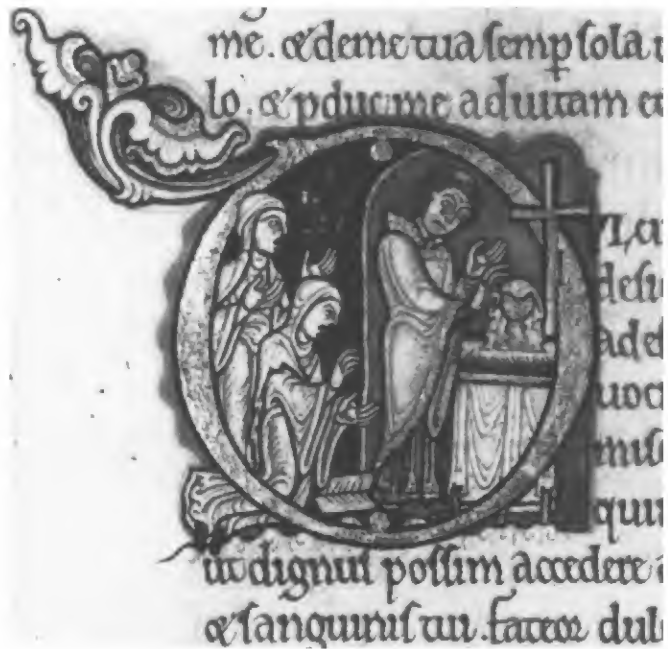 me. & deme tua semp sola
lo. & pduc me ad uitam et
desi
ade
uoc
mis
qui
ut dignus possim accedere
& sanguinis tui. fateor dul